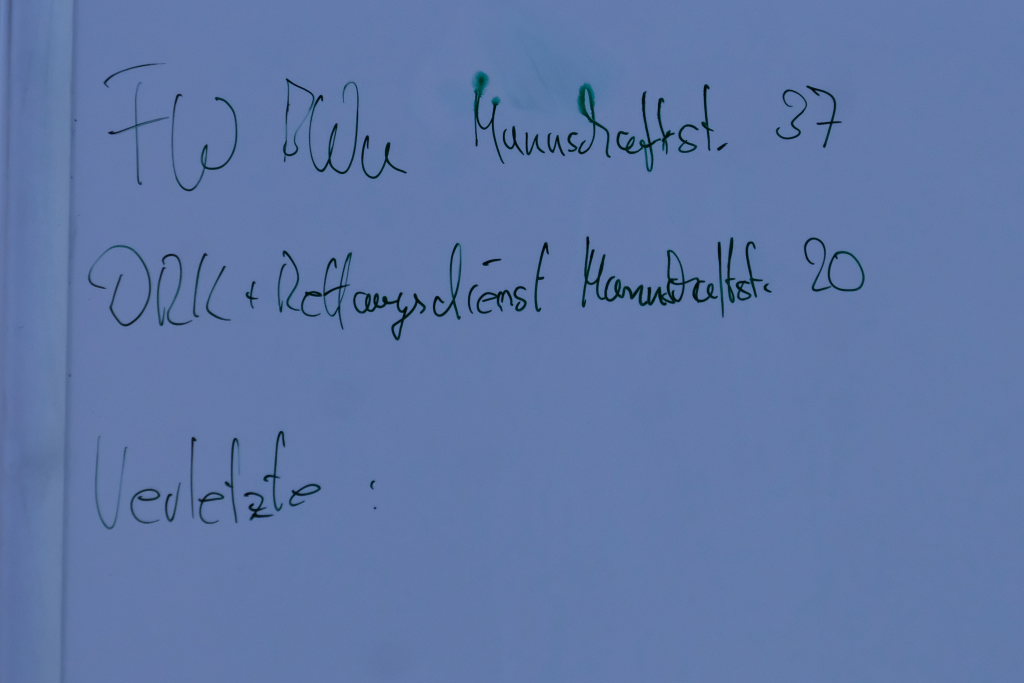 FW BWu Mannschaftst. 37
DRK + Rettungsdienst Mannschaftst. 20
Verletzte :